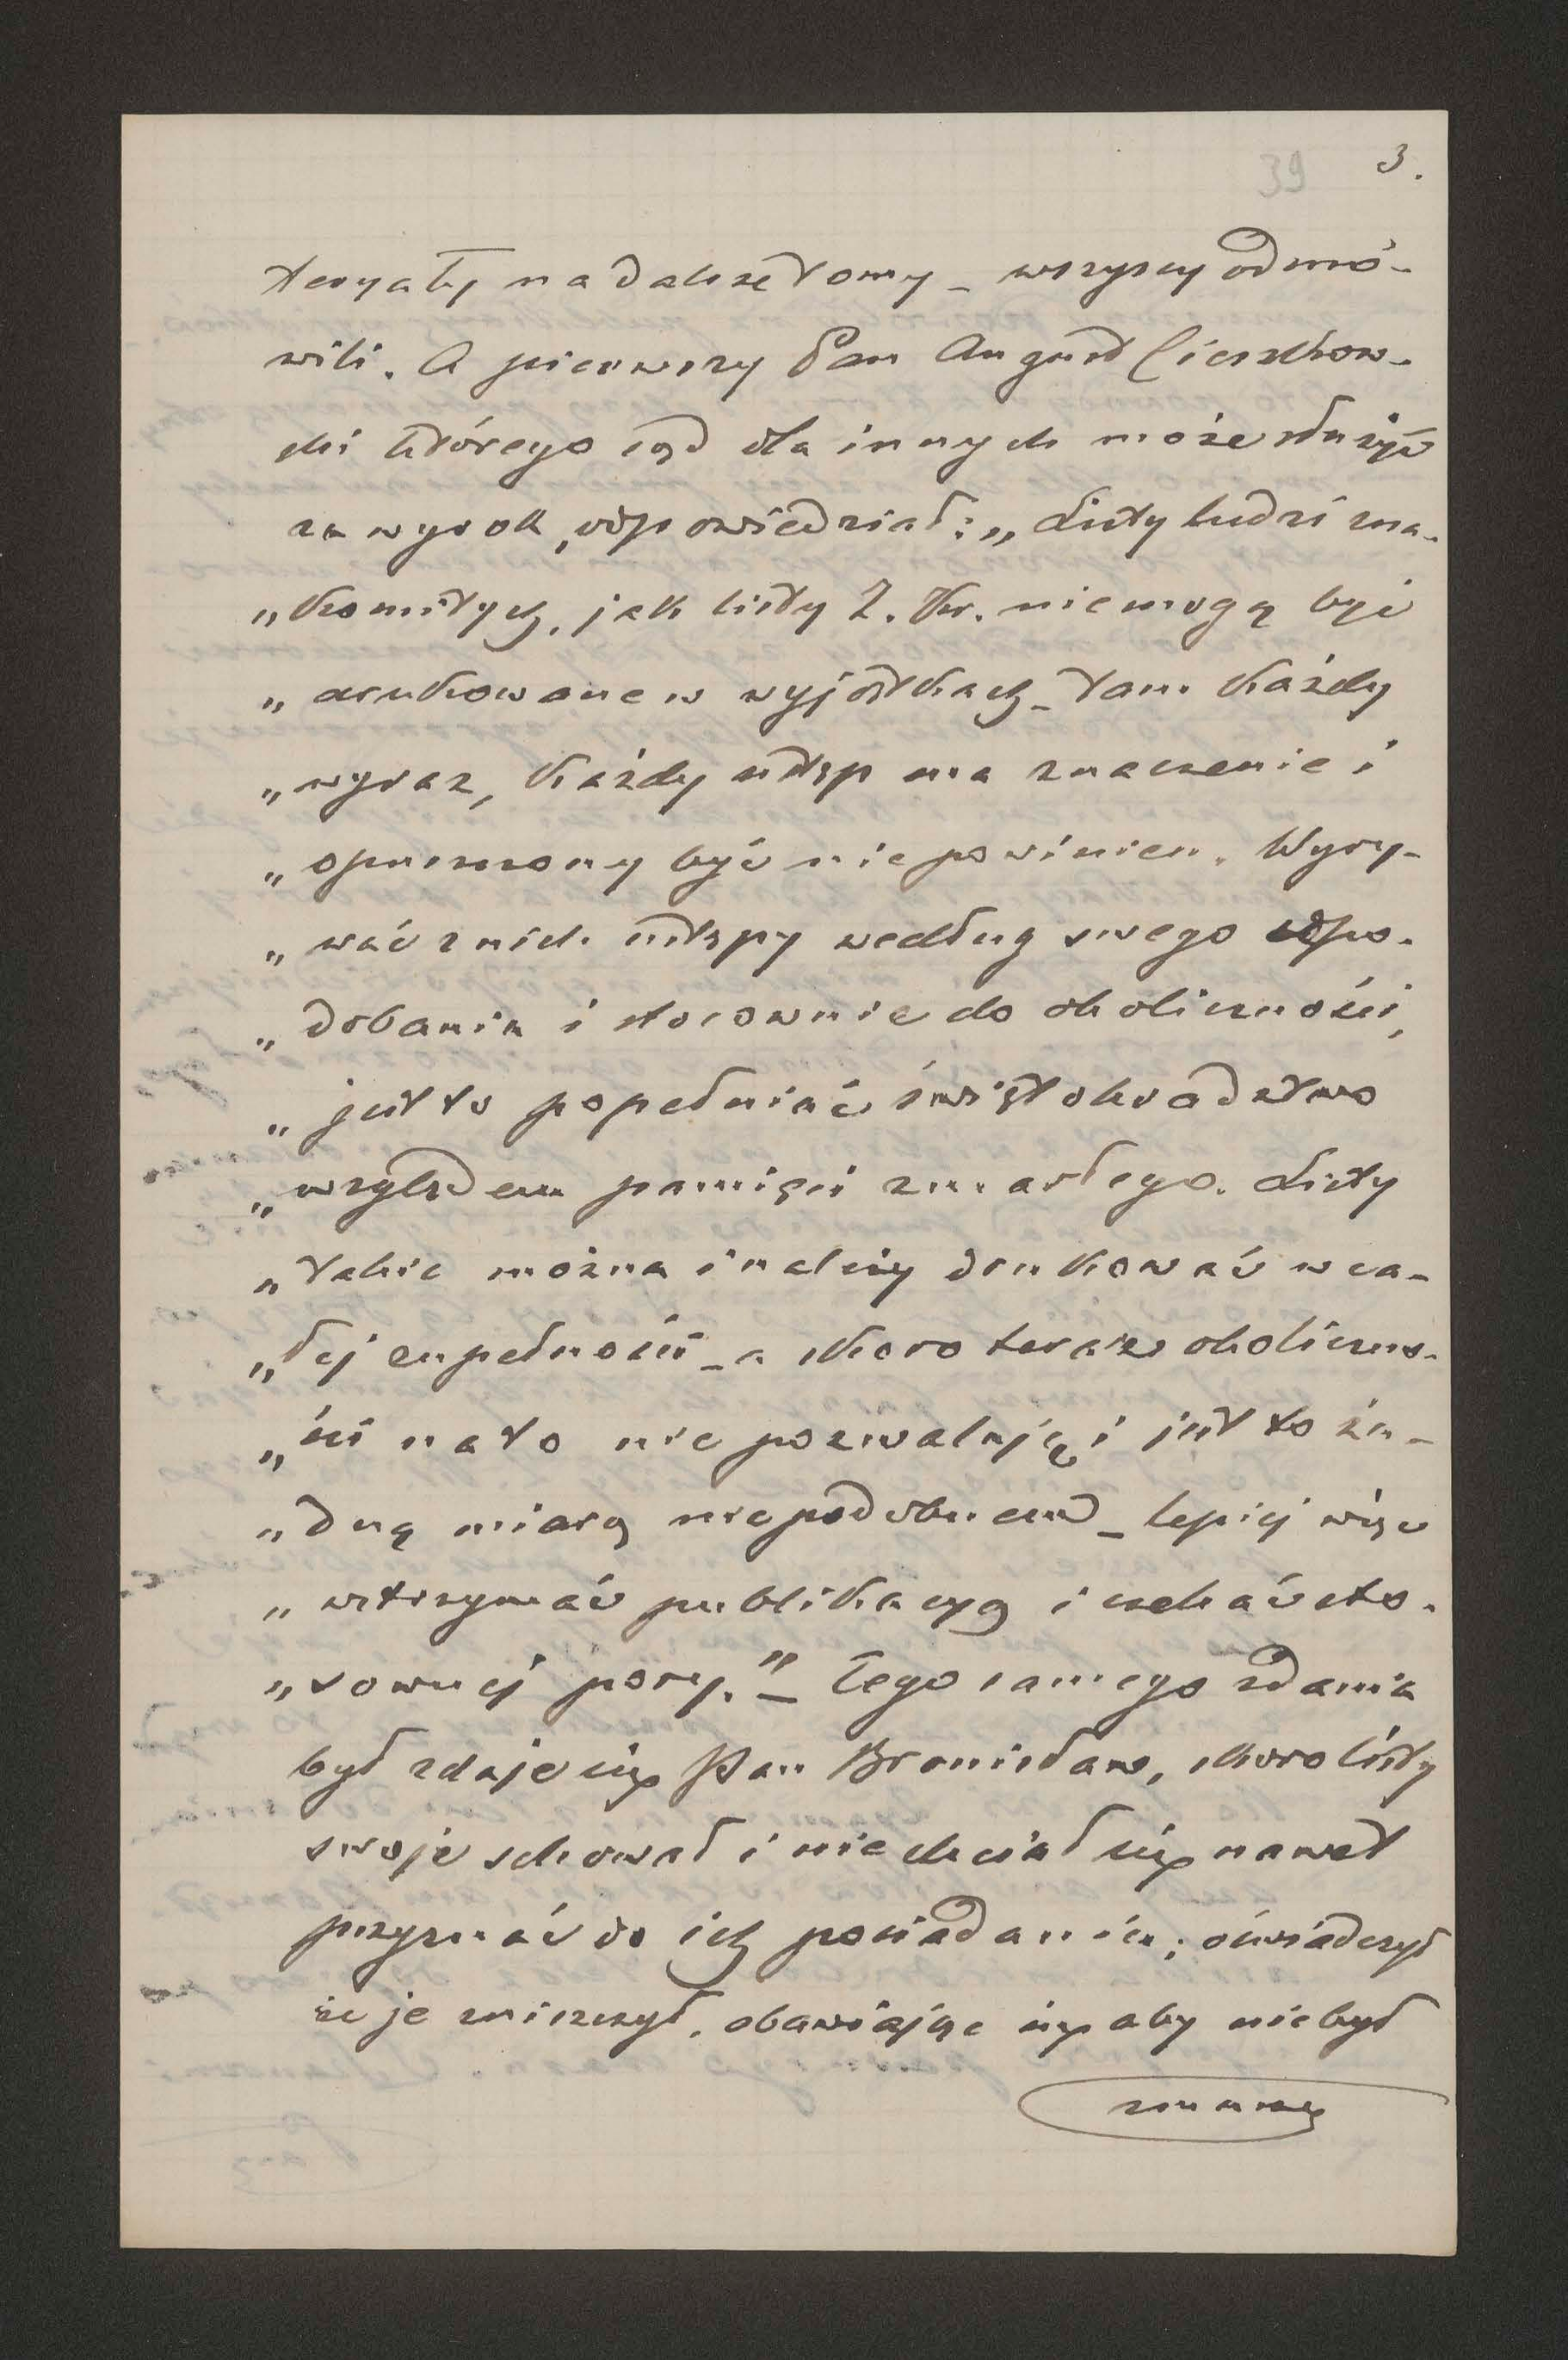 39 3.
teryały na dalsze tomy – wszyscy odmó-
wili. A pierwszy Pan August Cieszkow-
ski którego sąd dla innych może służyć
za wyrok, odpowiedział: „Listy ludzi zna-
„komitych, jak listy Z. Kr. nie mogą być
„drukowane w wyjątkach – tam każdy
„wyraz, każdy ustęp ma znaczenie i
„opuszczony być nie powinien. Wyry-
„wać z nich ustępy według swego upo-
„dobania i stosownie do okoliczności,
„jest to popełniać świętokradztwo
„względem pamięci zmarłego. Listy
„takie można i należy drukować w ca-
„łej zupełności – a skoro teraz okoliczno-
„ści na to nie pozwalają i jest to ża-
„dną miarą niepodobnem – lepiej więc
„wstrzymać publikacyą i czekać sto-
„sownej pory.” – Tego samego zdania
był zdaje się Pan Bronisław, skoro listy
swoje schował i nie chciał się nawet
przyznać do ich posiadania; oświadczył
że je zniszczył, obawiając się aby nie był